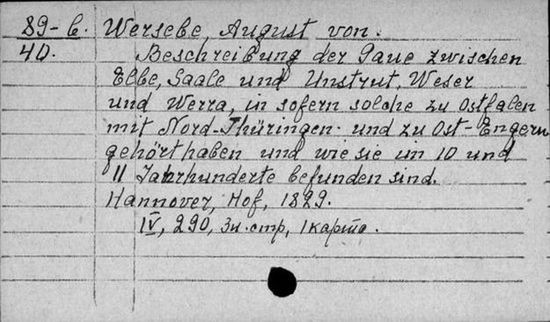 89-б. Wersebe, August von.
40. Beschreibung der Gaue zwischen
Elbe, Saale und Unstrut, Weser
und Werra, in sofern solche zu Ostfalen
mit Nord-Thüringen und zu Ost-Engern
gehört haben und wie sie im 10 und
11 Jahrhunderte befunden sind.
Hannover, Hof, 1829.
IV, 290, 3н. стр, 1 карта.